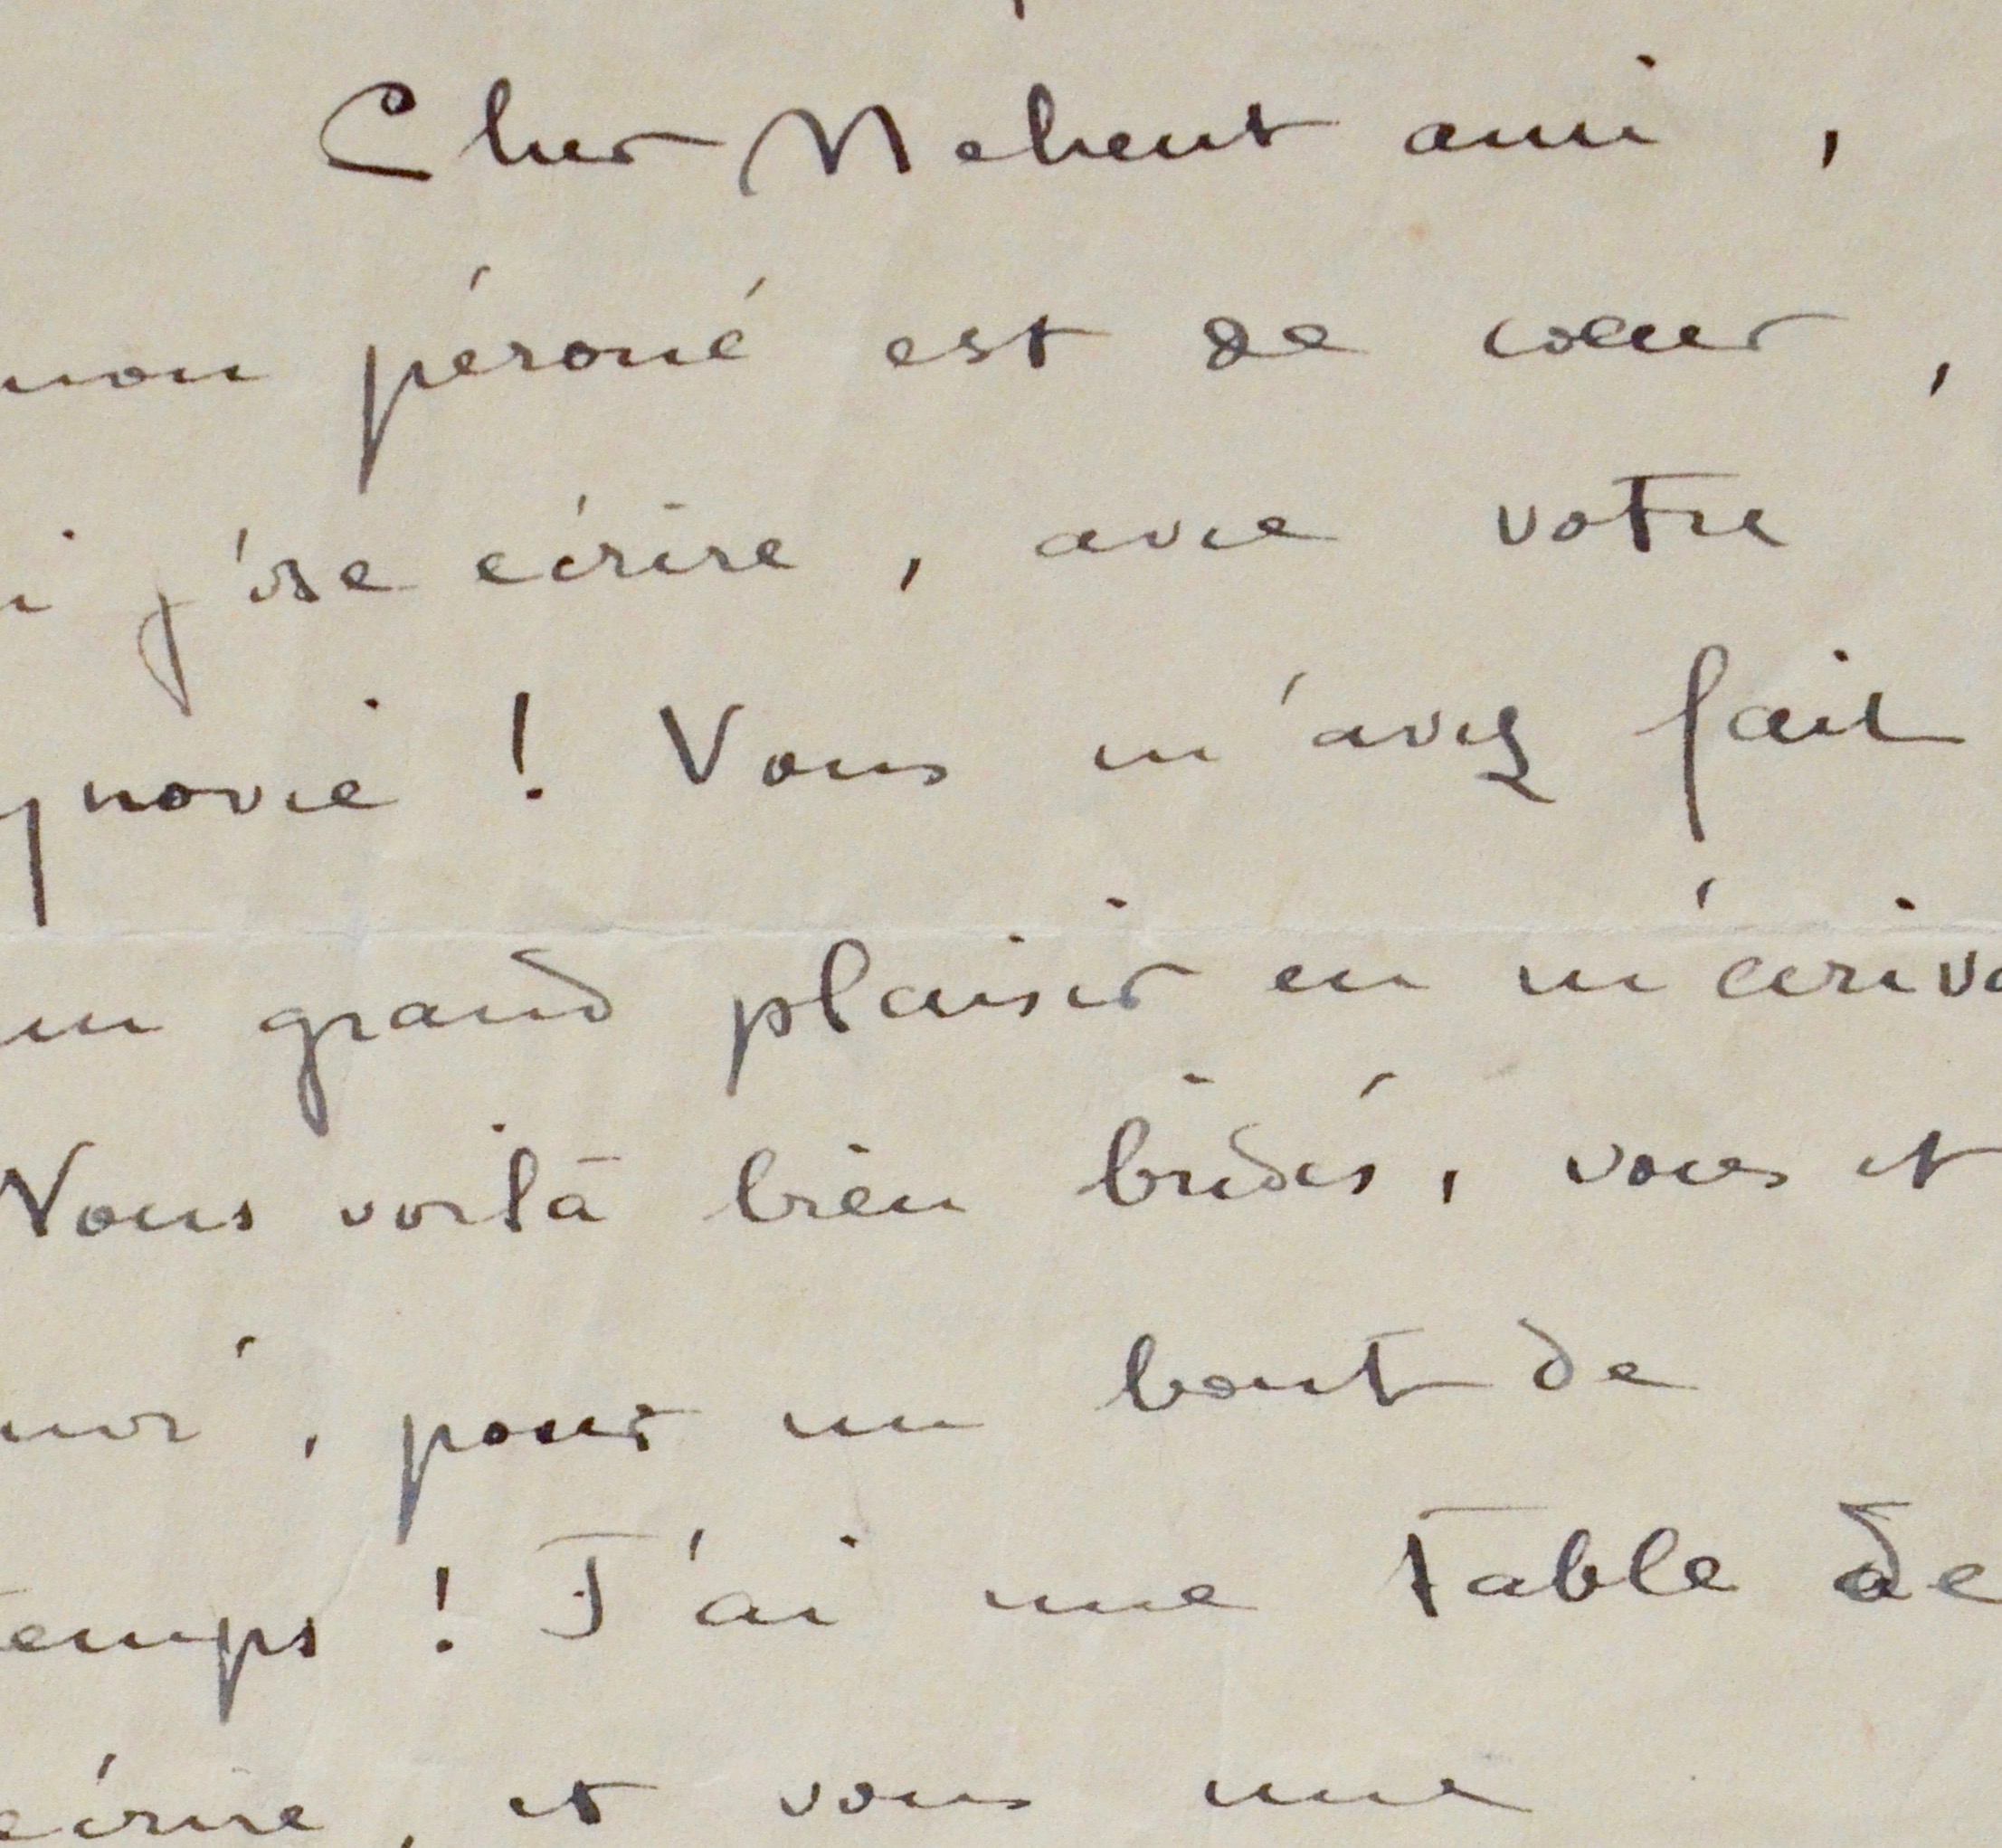 Cher Meheut ami,
mon péroné est de cœur,
i j'ose écrire, avec votre
ynovie ! Vous m'avez fait
un grand plaisir en m'écriva
Vous voilà bien bridés, vous et
moi, pour un bout de
temps ! J'ai une table de
écrire, et vous une